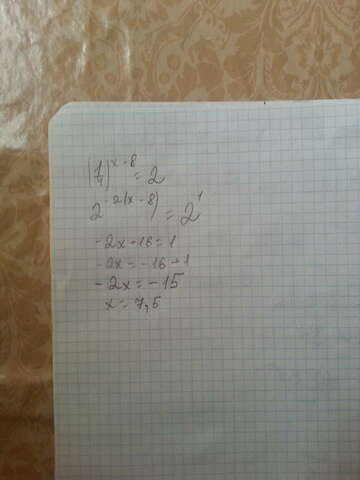 (1/4)^x-8 = 2
2^-2(x-8) = 2^1
-2x+16=1
-2x=-16+1
-2x=-15
x=7,5